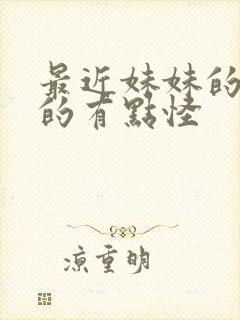 最近妹妹的
的有點怪
涼重明